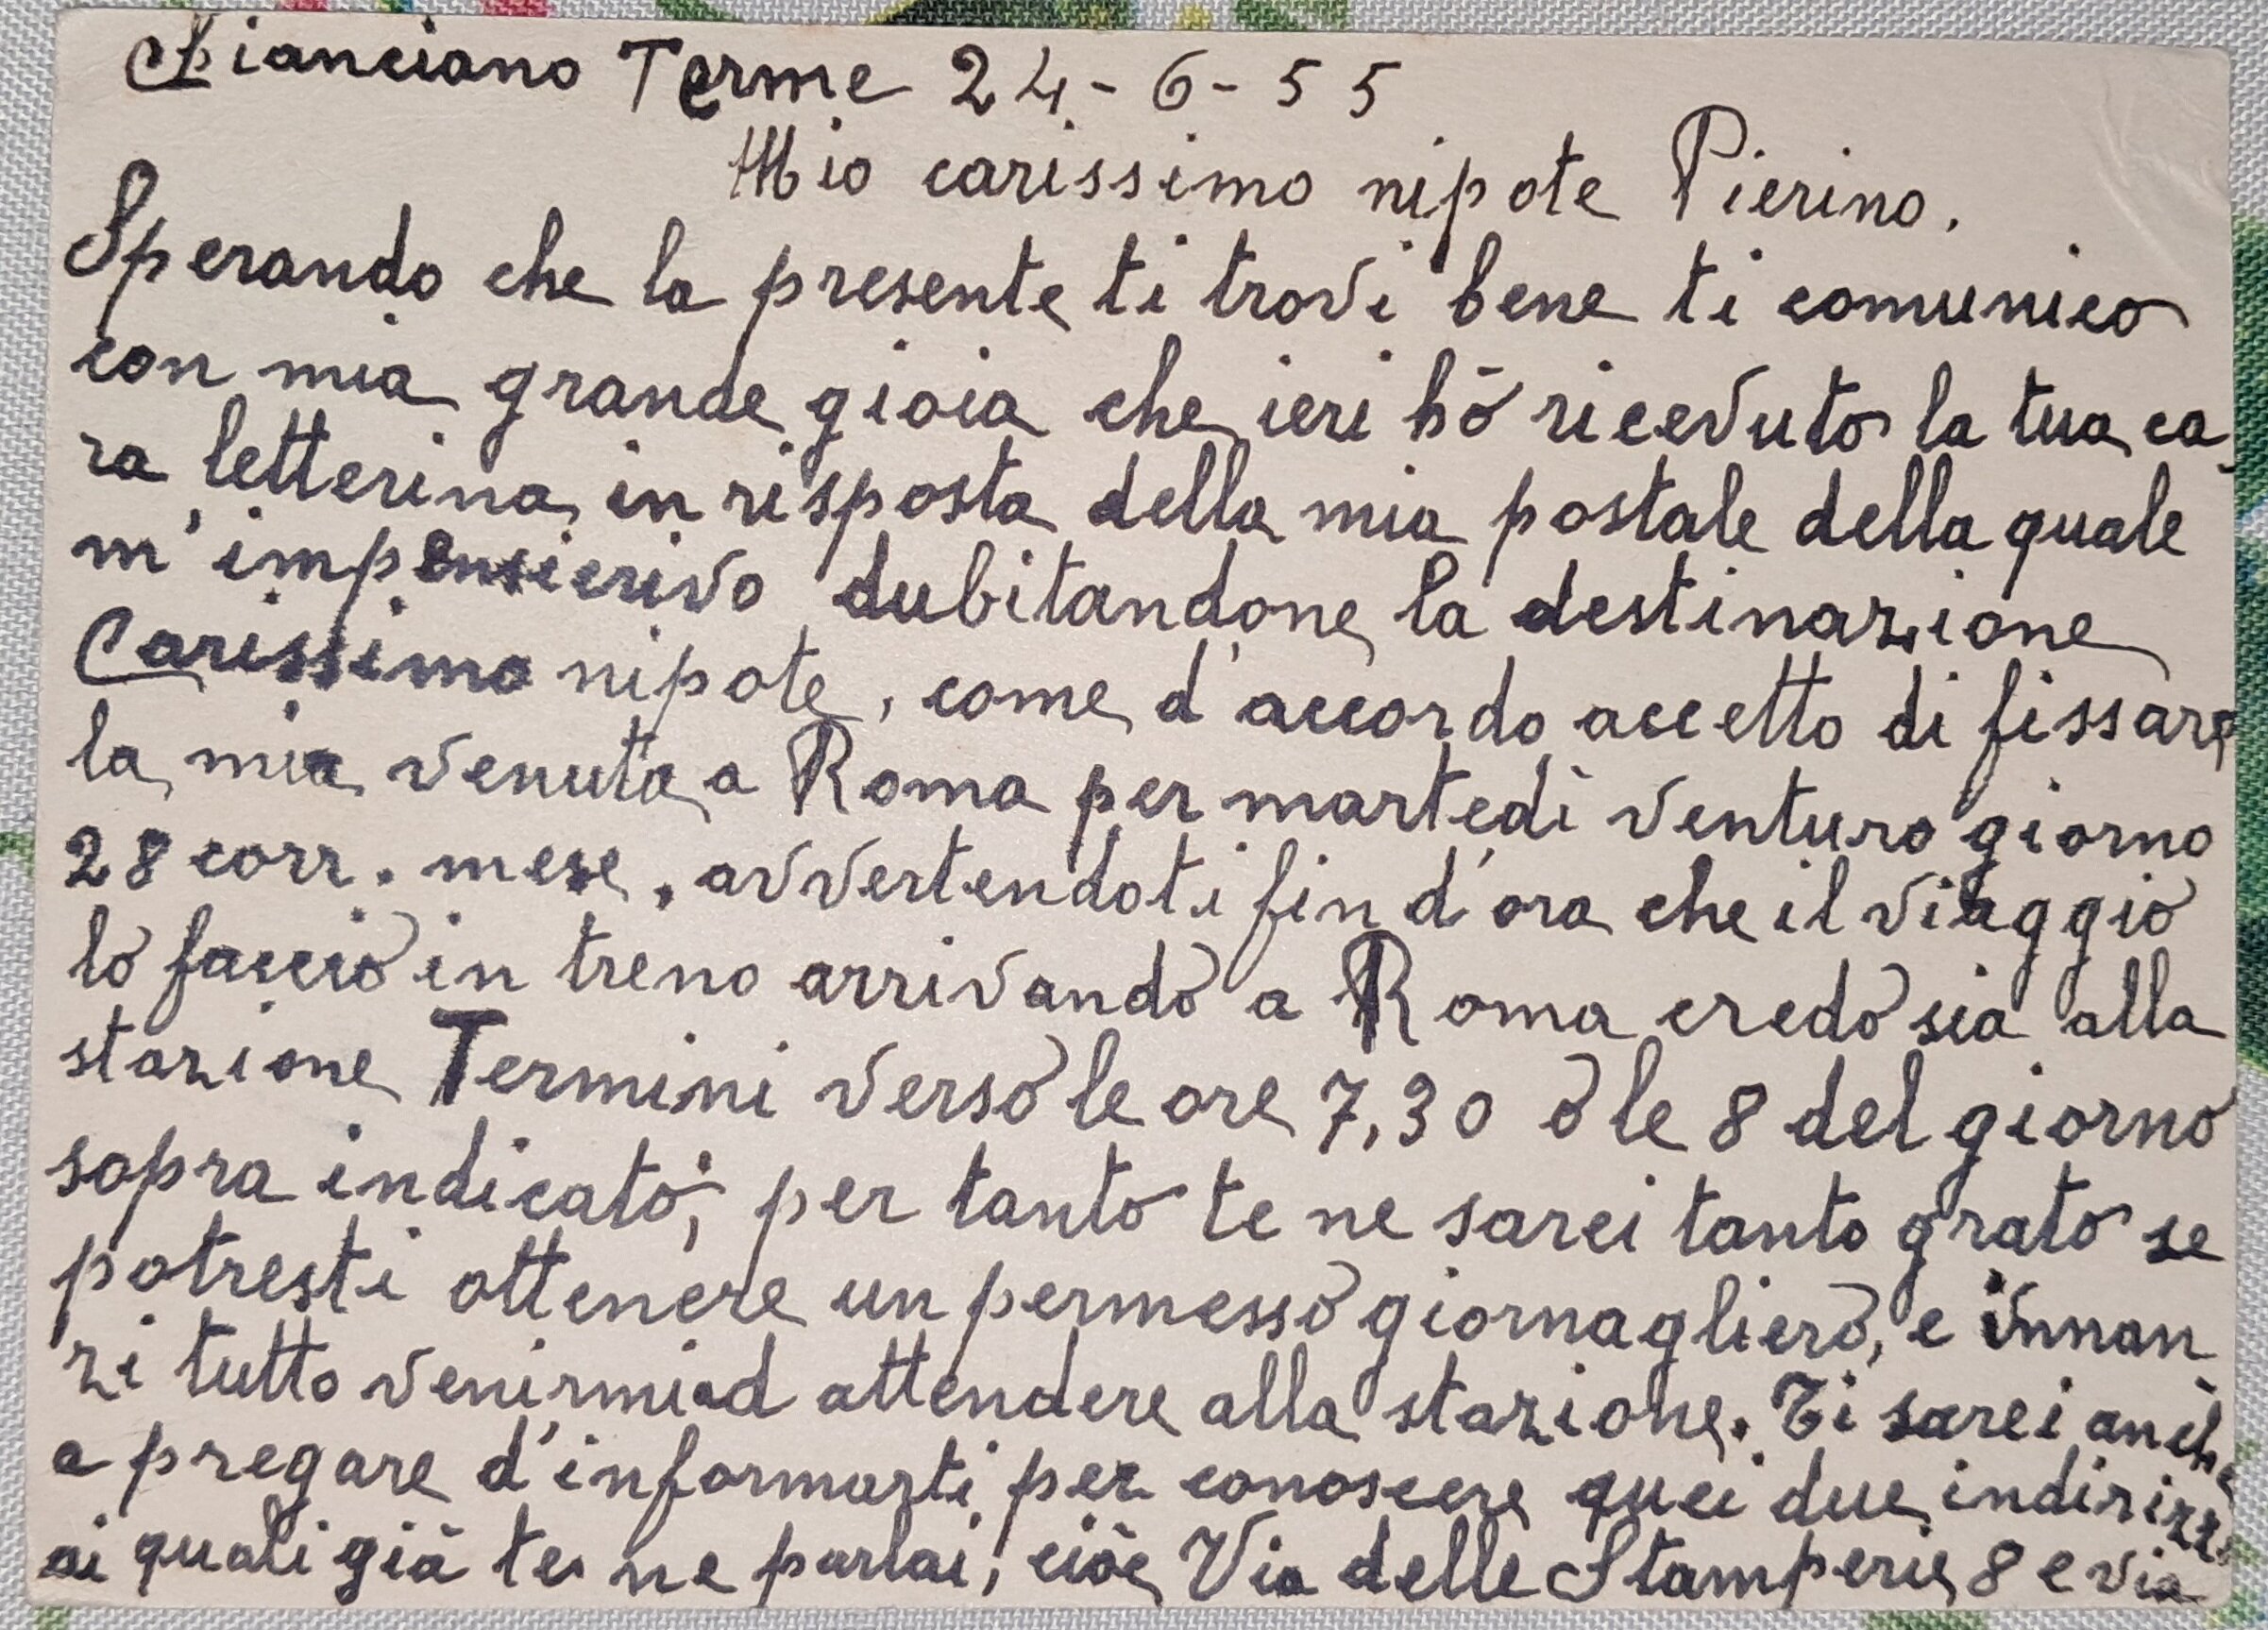 Chianciano Terme 24-6-55
Mio carissimo nipote Pierino.
Sperando che la presente ti trovi bene ti comunico
con mia grande gioia che ieri hò ricevuto la tua ca-
ra letterina in risposta della mia postale della quale
m'impensierivo dubitandone la destinazione
Carissimo nipote, come d'accordo accetto di fissare
la mia venuta a Roma per martedì venturo giorno
28 corr. mese, avvertendoti fin d'ora che il viaggio
lo faccio in treno arrivando a Roma credo sia alla
stazione Termini verso le ore 7,30 o le 8 del giorno
sopra indicato; per tanto te ne sarei tanto grato se
potresti ottenere un permesso giornagliero, e innan
zi tutto venirmi ad attendere alla stazione. Ti sarei anche
a pregare d'informarti per conoscere quei due indirizzi
ai quali già te ne parlai, cioè Via delle Stamperie 8 e via